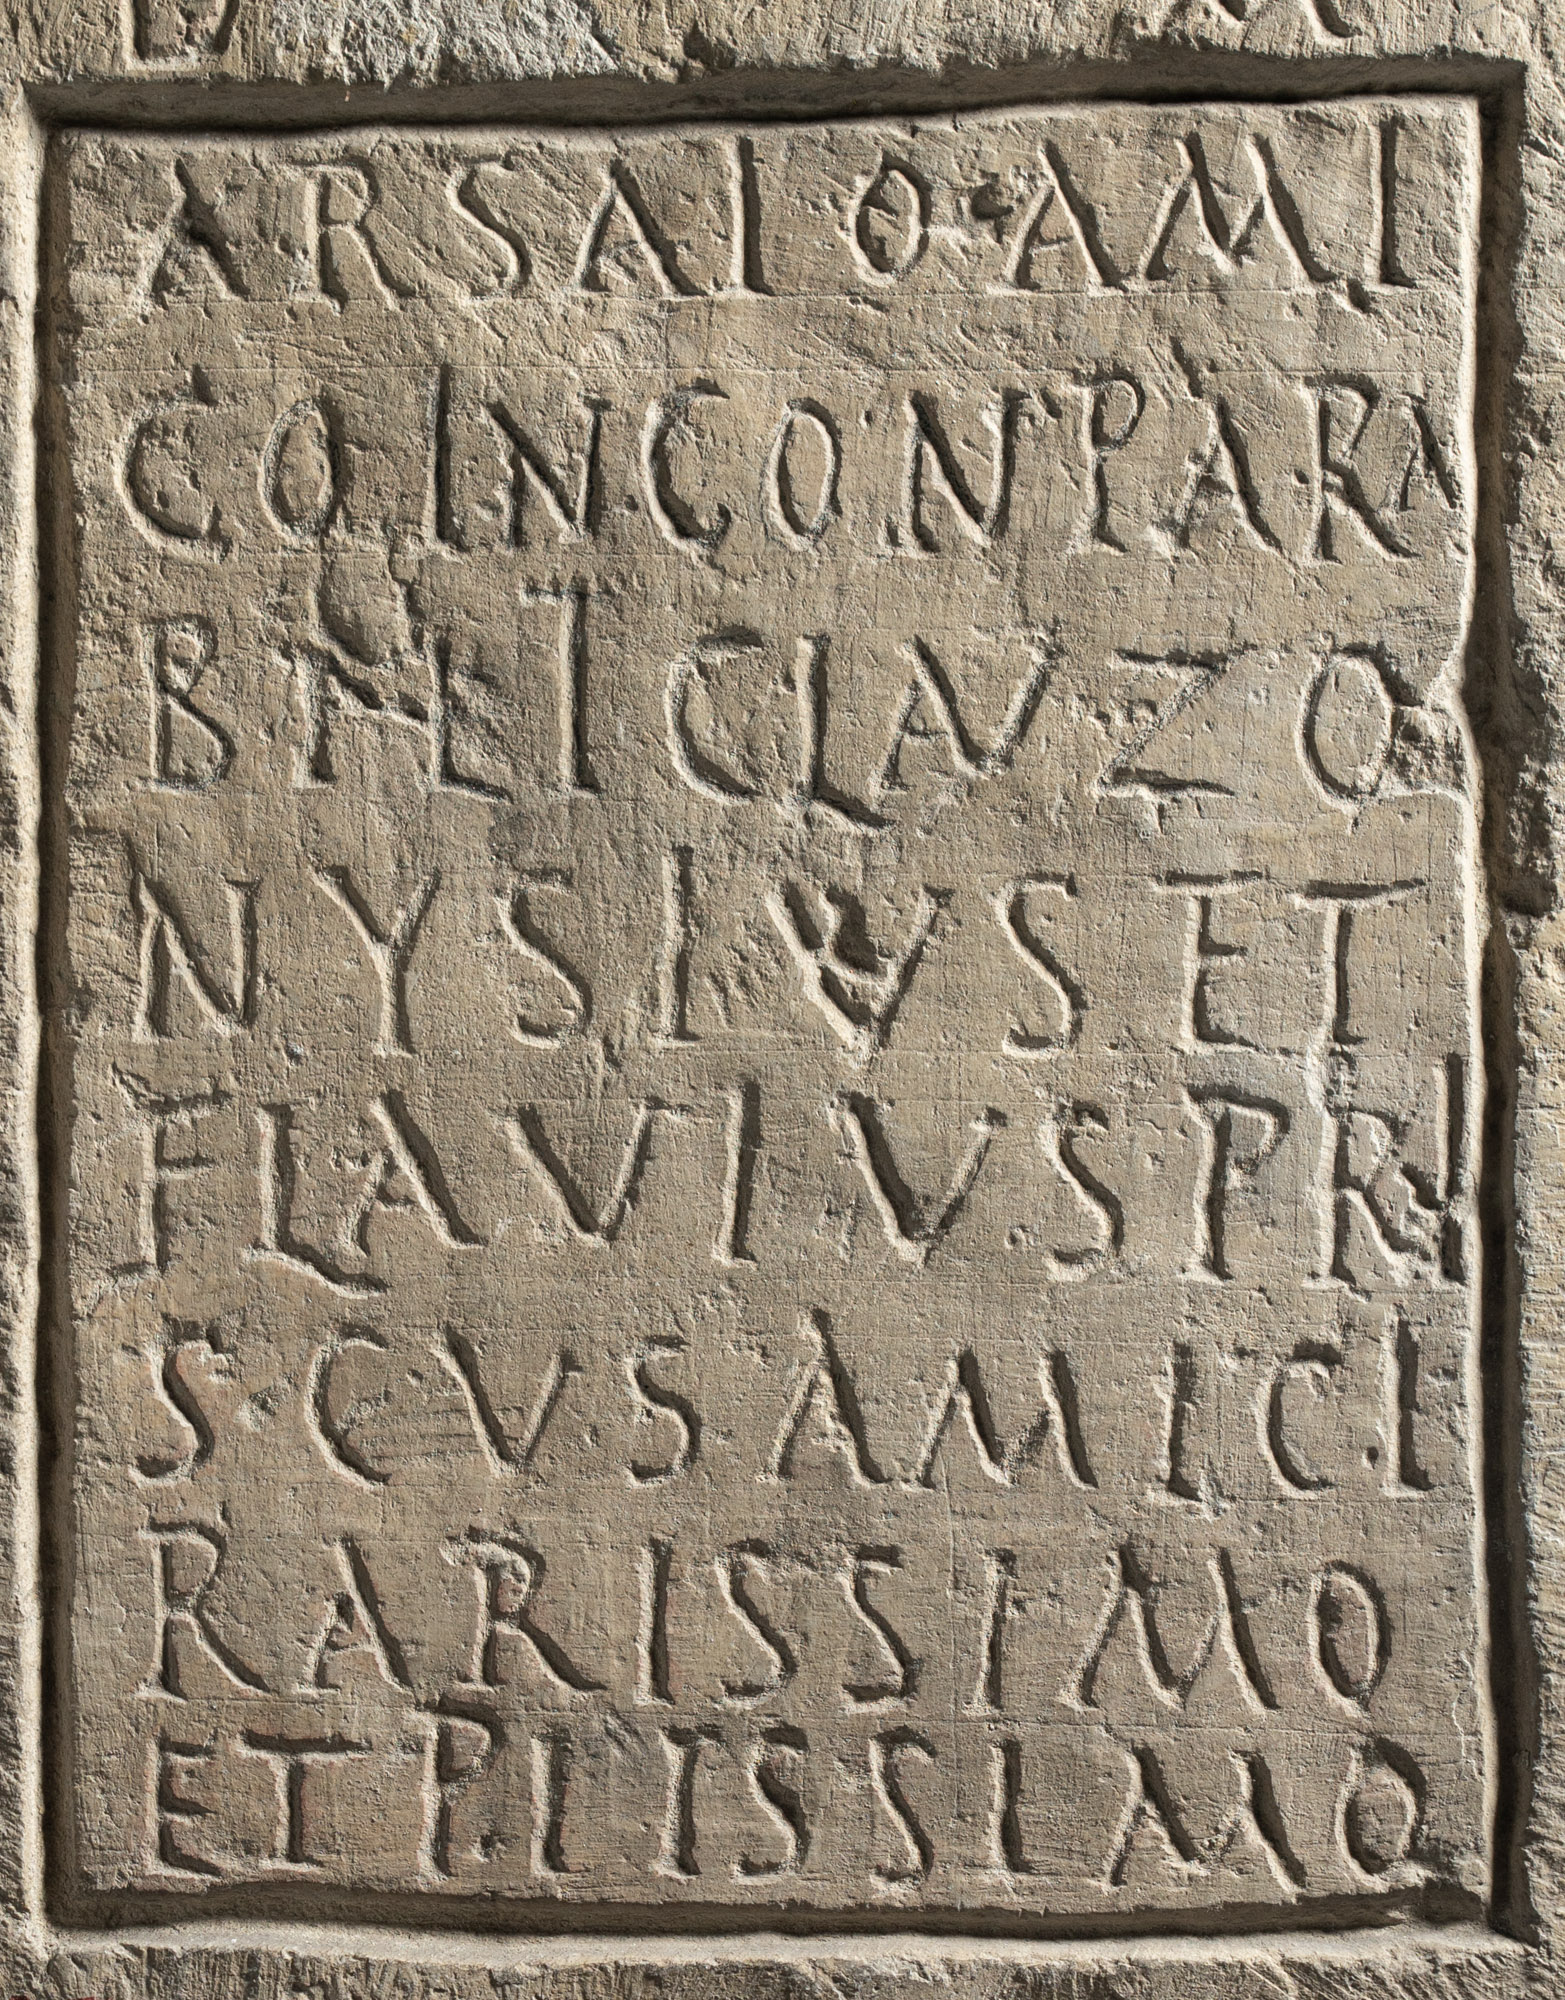 D M
ARSAIO·AMI
COIN·CONPARA
BILET CLAVZO
NYSIVS ET
FLAVIVS PRI
SCVS AMICI
RARISSIMO
ET PIISSIMO